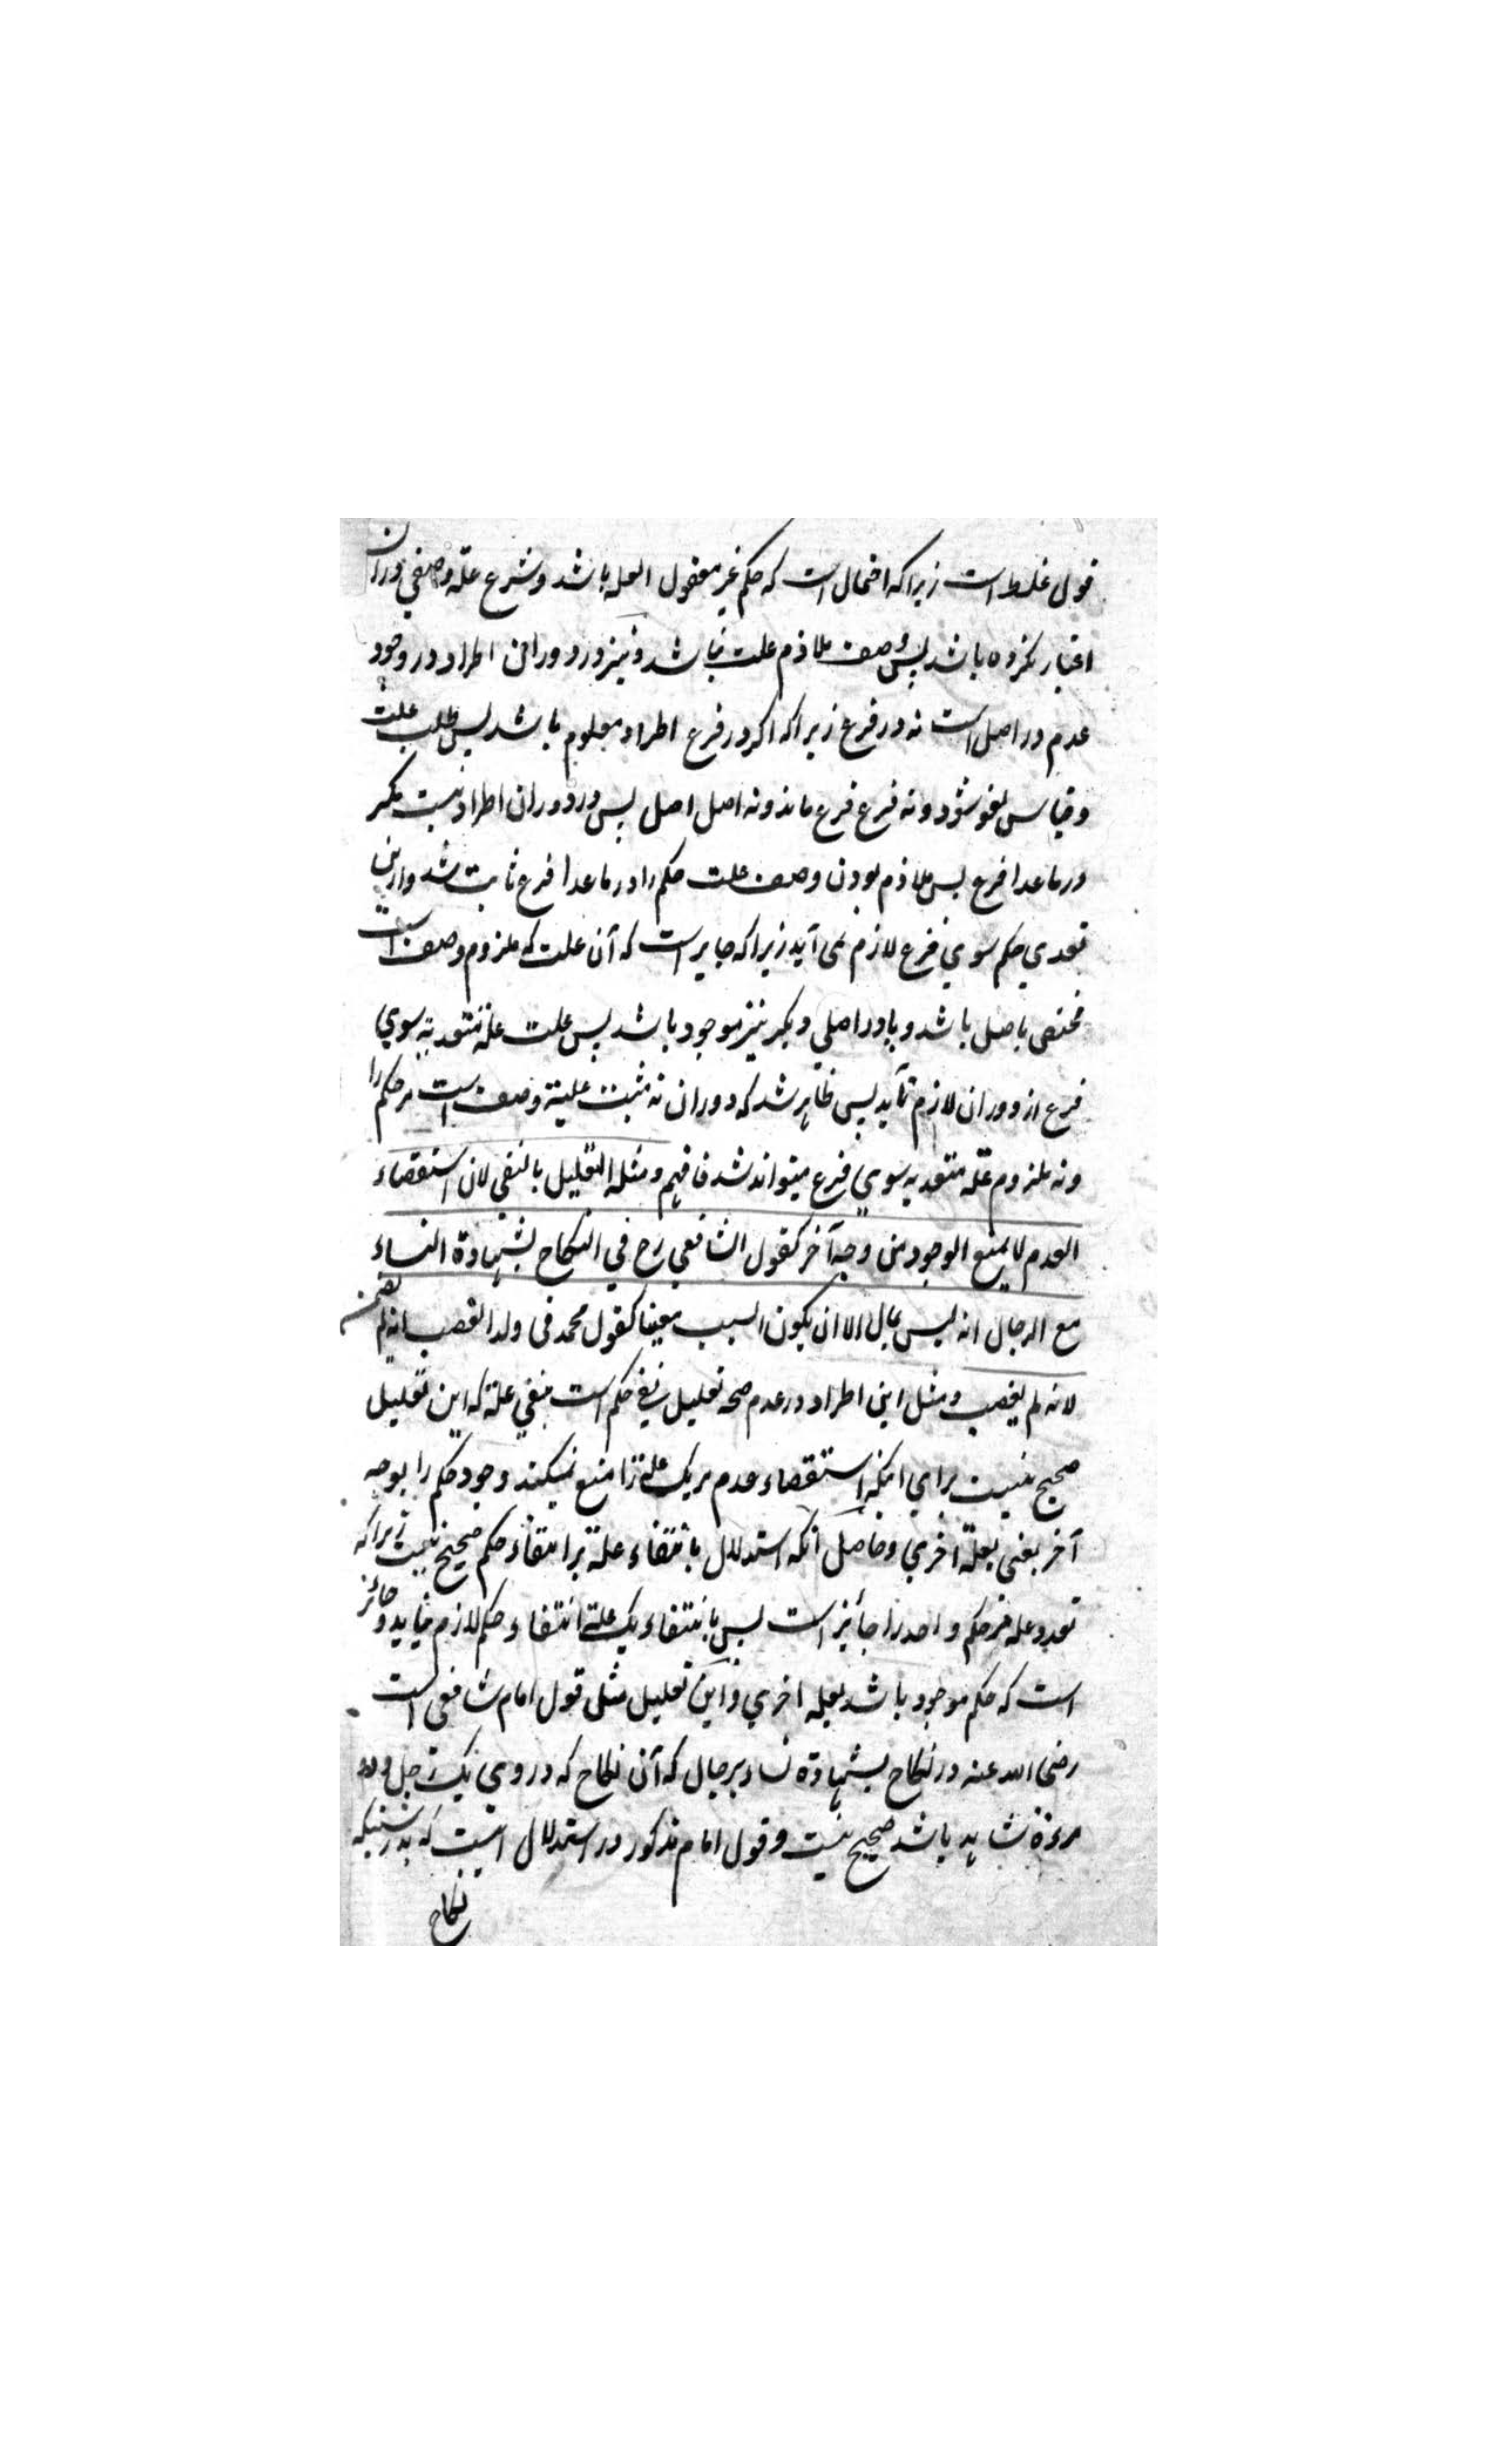 قول غلط است زیرا که احتمال است که حکم غیر معقول العله باشد و شرع علة وصفی دران
اعتبار نکرده باشد پس وصف ملازم علت نباشد و نیز در دوران اطراد در وجود
عدم در اصل است نه در فرع زیرا که اکر در فرع اطراد معلوم باشد پس طلب علت
و قیاس لغو شود و نه فرع فرع ماند و نه اصل اصل پس در دوران اطراد نیست مکر
در ماعدا فرع پس ملازم بودن وصف علت حکم را در ماعدا فرع ثابت شد وازین
تعدی حکم سوی فرع لازم نمی آید زیرا که جایز است که آن علت که ملزوم وصف است
مختص باصل باشد و یا در اصلی دیکر نیز موجود باشد پس علت علة متعدیة سوی
فرع از دوران لازم نآید پس ظاهر شد که دوران نه مثبت علیة وصف است مر حکم را
ونه ملزوم علة متعدیه سوی فرع میتواند شد فافهم ومثله التعلیل بالنفی لان استقصاء
العدم لا یمنع الوجود من وجه آخر کقول الشافعی رح فی النکاح بشهادة النساء
مع الرجال انه لیس بمال الا ان یکون السبب معینا کقول محمد فی ولد الغصب انه لم یضمن
لانه لم یغصب و مثل این اطراد در عدم صحه تعلیل نفی حکم است بنفی علة که این تعلیل
صحیح نیست برای اینکه استقصاء عدم مر یک علة را منع نمیکند وجود حکم را بوجه
آخر یعنی بعلة اخری و حاصل آنکه استدلال بانتفاء علة بر انتفاء حکم صحیح نیست زیرا که
تعدد علة مر حکم واحد را جائز است پس بانتفاء یک علة انتفاء حکم لازم نیاید و جائز
است که حکم موجود باشد بعله اخری و این تعلیل مثل قول امام شافعی است
رضی الله عنه در نکاح بشهادة نساء برجال که آن نکاح که در وی یک رجل و دو
مرءة شاهد باشد صحیح نیست و قول امام مذکور در استدلال اینست که بدرستیکه
نکاح